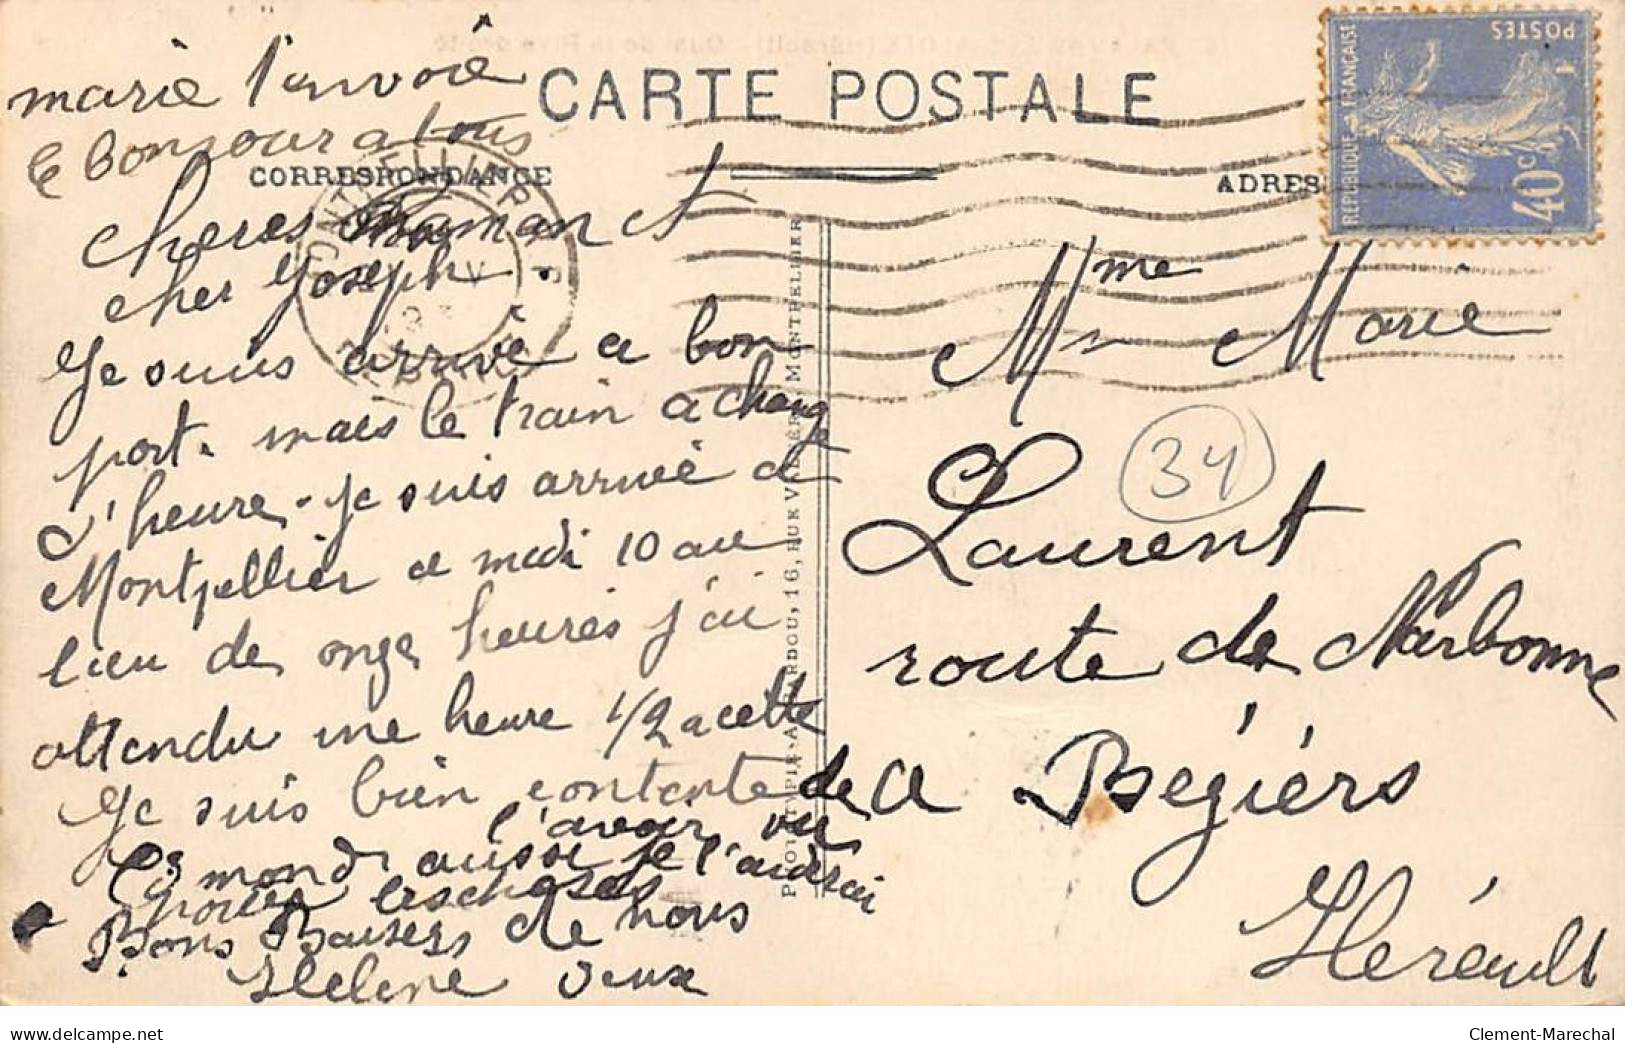 marie l'envoie
le bonjour a tous
CARTE POSTALE
CORRESPONDANCE
ADRES
cheres Maman et
cher Joseph.
Je suis arrivé a bon
port. mais le train a change
d'heure. je suis arrivé a
Montpellier a midi 10 au
lieu de onze heures j'ai
attendu une heure 1/2 a cette
Je suis bien contente de
l'avoir vu
mondr aussi je l'aidrai
les choses
Bons Baisers de nous
Helene deux
PHOTOTYPIE A. BARDOU, 16, RUE VALFÈRE, MONTPELLIER
MONTPELLIER
REPUBLIQUE FRANÇAISE
POSTES
40c
Mme
Mr Marie
34
Laurent
route de Narbonne
a Béziérs
Herault
www.delcampe.net
Clement-Marechal